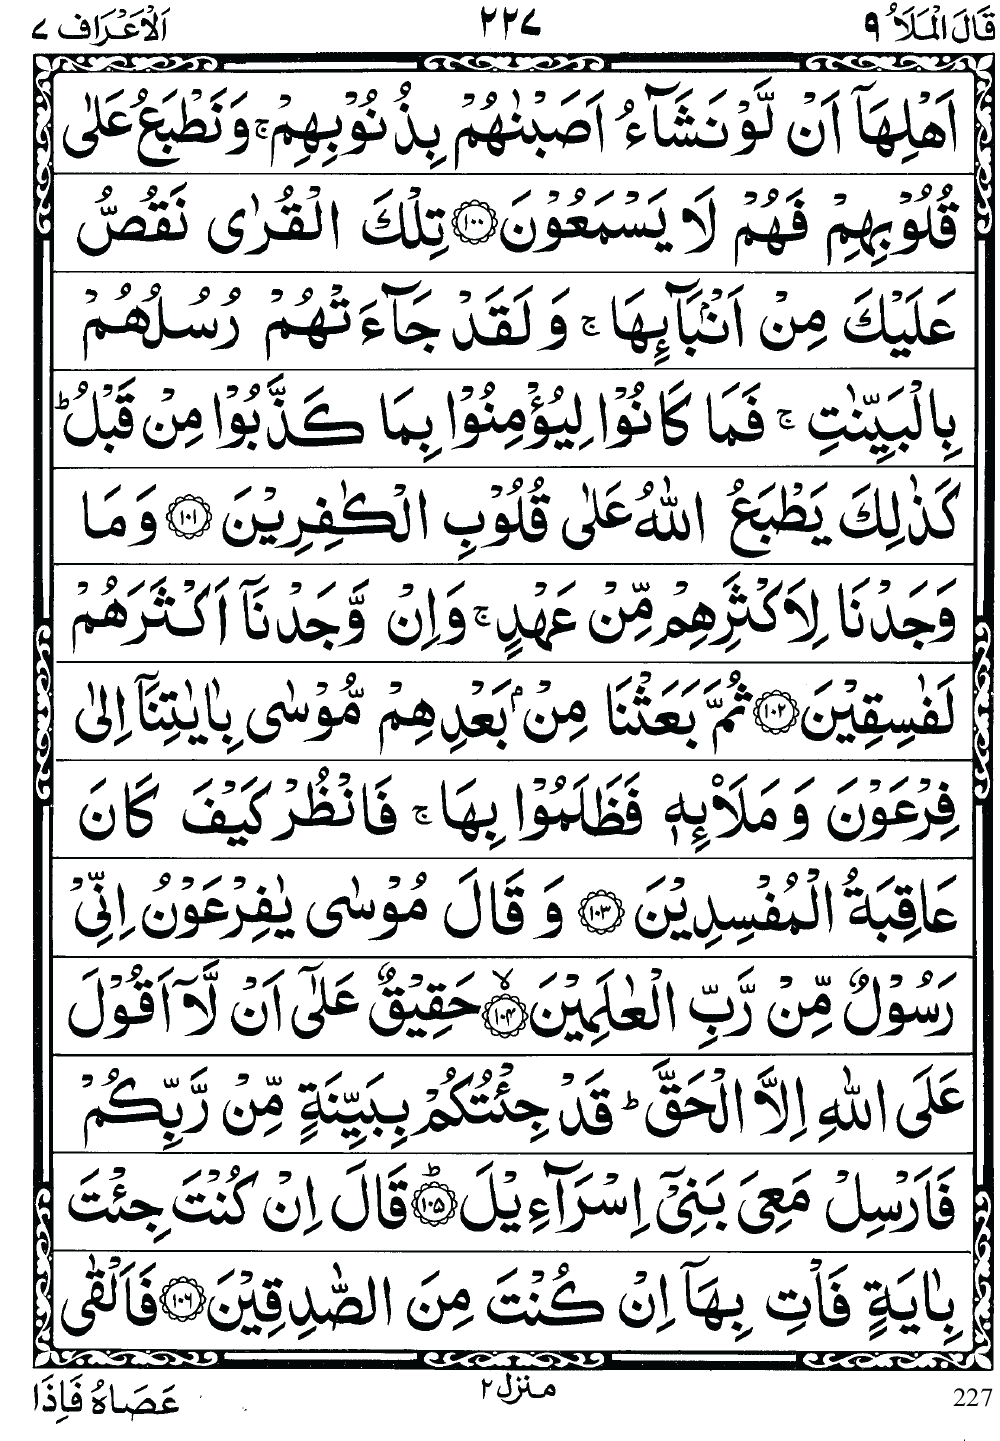 قَالَ الْمَلَاُ ۹ ۲۲۷ اَلْاَعْرَاف ۷
اَهْلِهَاۤ اَنْ لَّوْ نَشَآءُ اَصَبْنٰهُمْ بِذُنُوْبِهِمْ ۚ وَنَطْبَعُ عَلٰى
قُلُوْبِهِمْ فَهُمْ لَا يَسْمَعُوْنَ ﴿۱۰۰﴾ تِلْكَ الْقُرٰى نَقُصُّ
عَلَيْكَ مِنْ اَنْۢبَآىِٕهَا ۚ وَلَقَدْ جَآءَتْهُمْ رُسُلُهُمْ
بِالْبَيِّنٰتِ ۚ فَمَا كَانُوْا لِيُؤْمِنُوْا بِمَا كَذَّبُوْا مِنْ قَبْلُ ؕ
كَذٰلِكَ يَطْبَعُ اللّٰهُ عَلٰى قُلُوْبِ الْكٰفِرِيْنَ ﴿۱۰۱﴾ وَمَا
وَجَدْنَا لِاَكْثَرِهِمْ مِّنْ عَهْدٍ ۚ وَاِنْ وَّجَدْنَاۤ اَكْثَرَهُمْ
لَفٰسِقِيْنَ ﴿۱۰۲﴾ ثُمَّ بَعَثْنَا مِنْۢ بَعْدِهِمْ مُّوْسٰى بِاٰيٰتِنَاۤ اِلٰى
فِرْعَوْنَ وَمَلَا۟ىِٕهٖ فَظَلَمُوْا بِهَا ۚ فَانْظُرْ كَيْفَ كَانَ
عَاقِبَةُ الْمُفْسِدِيْنَ ﴿۱۰۳﴾ وَقَالَ مُوْسٰى يٰفِرْعَوْنُ اِنِّىْ
رَسُوْلٌ مِّنْ رَّبِّ الْعٰلَمِيْنَ ۙ﴿۱۰۴﴾ حَقِيْقٌ عَلٰۤى اَنْ لَّاۤ اَقُوْلَ
عَلَى اللّٰهِ اِلَّا الْحَقَّ ؕ قَدْ جِئْتُكُمْ بِبَيِّنَةٍ مِّنْ رَّبِّكُمْ
فَاَرْسِلْ مَعِىَ بَنِىْۤ اِسْرَآءِيْلَ ؕ﴿۱۰۵﴾ قَالَ اِنْ كُنْتَ جِئْتَ
بِاٰيَةٍ فَاْتِ بِهَاۤ اِنْ كُنْتَ مِنَ الصّٰدِقِيْنَ ﴿۱۰۶﴾ فَاَلْقٰى
عَصَاهُ فَاِذَا منزل ۲ 227